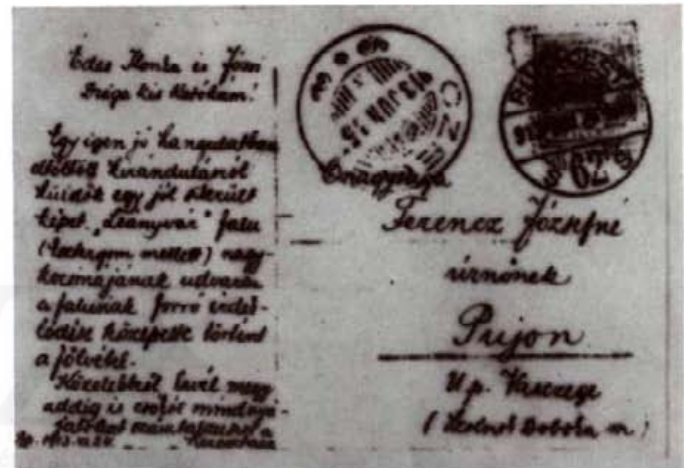 Édes Ilonka és Józsi
Drága kis Katókám!
Egy igen jó hangulatban
eltöltött kirándulásról
küldök egy jól sikerült
képet. „Leányvár" falu
(Esztergom mellett) nagy-
kocsmájának udvarán
a falunak forró érdek-
lődése közepette történt
a fölvétel.
Közelebbről levél megy
addig is csókol mindnyá-
jatokat
Bp. 1913.
913 JUN
BUDAPEST
Őnagysága
Ferencz Józsefné
úrnőnek
Pujon
U. p.
(Szolnok Doboka m.)